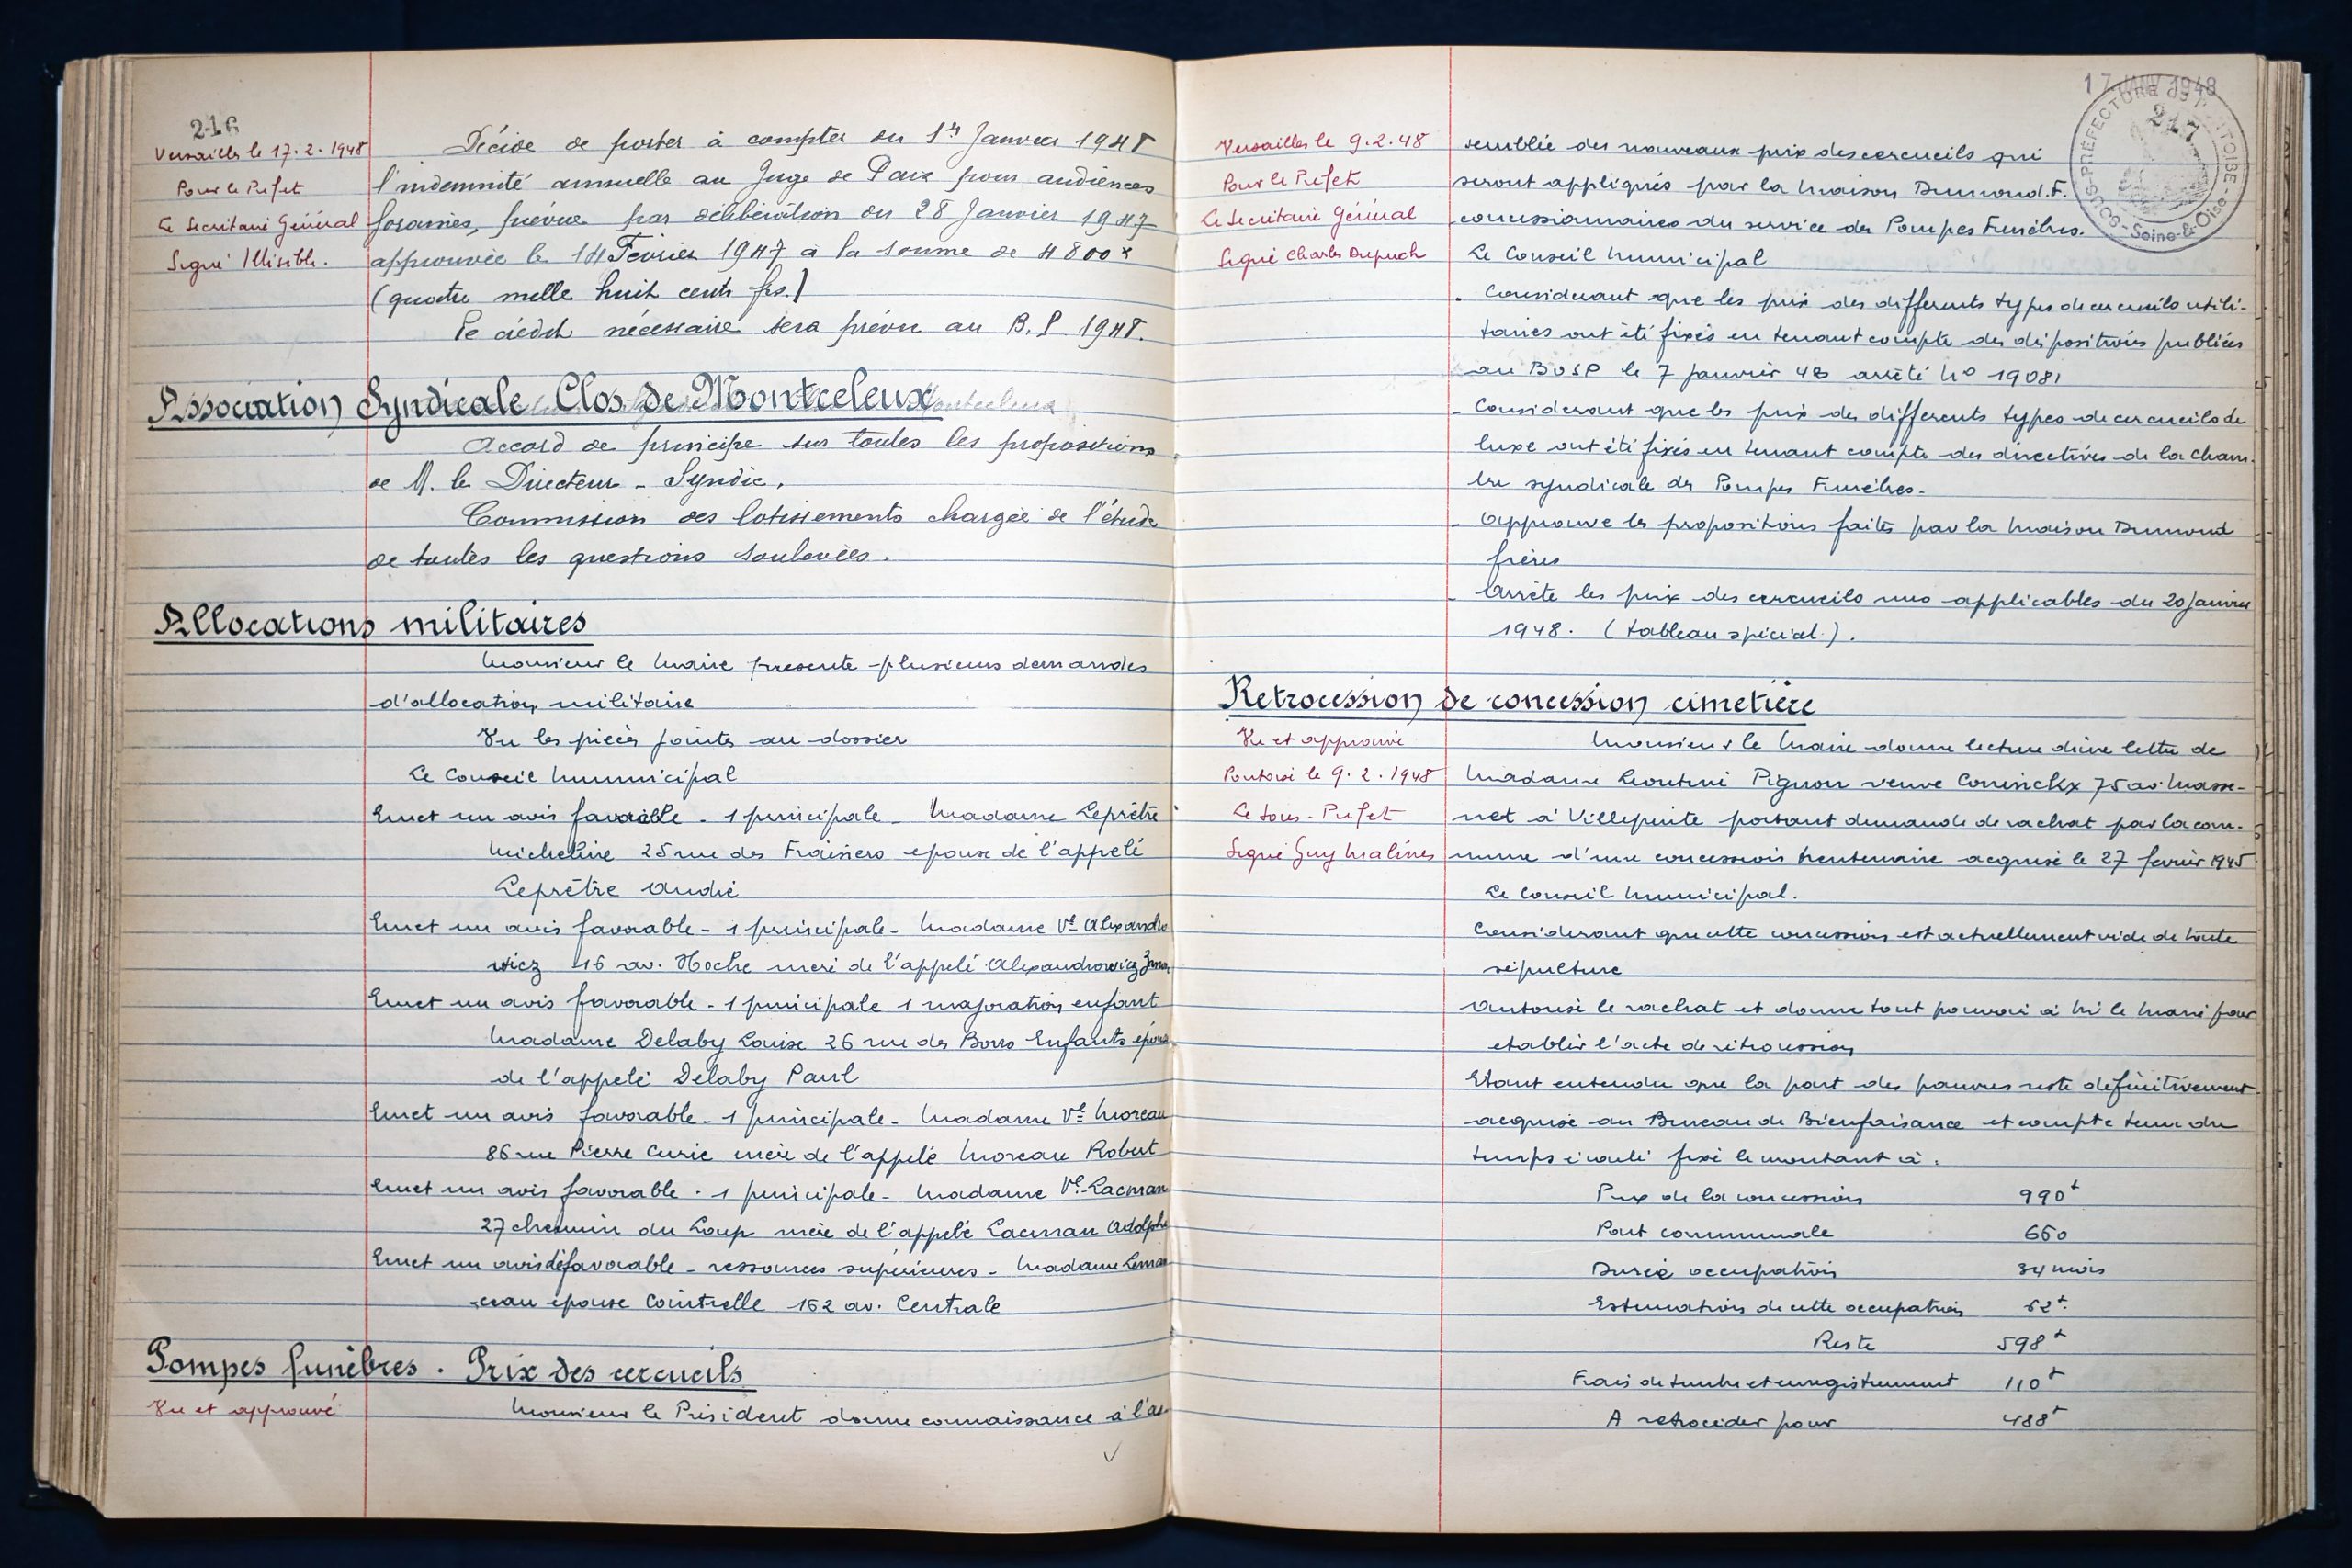 216
Versailles le 17.2.1948
Pour le Préfet
Le Secrétaire Général
Signé Illisible.
Décide de porter à compter du 1er Janvier 1948
l'indemnité annuelle au Juge de Paix pour audiences
foraines, prévue par délibération du 28 Janvier 1947
approuvée le 14 Février 1947 à la somme de 4800 f
(quatre mille huit cents frs.)
Le crédit nécessaire sera prévu au B.P 1948.
Association Syndicale Clos de Montceleux
Accord de principe sur toutes les propositions
de M. le Directeur - Syndic.
Commission des lotissements chargée de l'étude
de toutes les questions soulevées.
Allocations militaires
Monsieur le Maire presente plusieurs demandes
d'allocation militaire
Vu les pièces jointes au dossier
Le Conseil Municipal
Emet un avis favorable - 1 principale - Madame Leprêtre
Micheline 25 rue des Fraisiers epouse de l'appelé
Leprêtre André
Emet un avis favorable - 1 principale - Madame Ve Alexandro
wicz 116 av. Hoche mère de l'appelé Alexandrowicz
Emet un avis favorable - 1 principale 1 majoration enfant
Madame Delaby Louise 26 rue des Bons Enfants épouse
de l'appelé Delaby Paul
Emet un avis favorable - 1 principale - Madame Ve Moreau
86 rue Pierre Curie mère de l'appelé Moreau Robert
Emet un avis favorable - 1 principale - Madame Ve Lacman
27 chemin du Loup mère de l'appelé Lacman Adolphe
Emet un avis défavorable - ressources supérieures - Madame
ceau épouse Cointrelle 162 av. Centrale
Pompes funèbres . Prix des cercueils
Vu et approuvé
Monsieur le Président donne connaissance à l'as-
17 JANV 1948
217
SOUS-PRÉFECTURE de PONTOISE - Seine-&-Oise -
Versailles le 9.2.48
Pour le Préfet
Le Secrétaire Général
Signé Charles Dupuch
semblée des nouveaux prix des cercueils qui
seront appliqués par la Maison Dumond. F.
concessionnaires du service des Pompes Funèbres.
Le Conseil Municipal
- Considerant que les prix des differents types de cercueils utili-
taires ont été fixés en tenant compte des dispositions publiées
au BOSP le 7 janvier 48 arrêté No 19081
- Considerant que les prix des differents types de cercueils de
luxe ont été fixés en tenant compte des directives de la Cham-
bre syndicale des Pompes Funèbres -
- Approuve les propositions faites par la Maison Dumond
frères
- Arrête les prix des cercueils nus applicables du 20 Janvier
1948. (tableau spécial.).
Retrocession de concession cimetière
Vu et approuvé
Pontoise le 9.2.1948
Le Sous-Préfet
Signé Guy Malines
Monsieur le Maire donne lecture d'une lettre de
Madame Léontine Pignon veuve Coninckx 75 av. Masse-
net à Villepinte portant demande de rachat par la com-
mune d'une concession trentenaire acquise le 27 fevrier 1945
Le Conseil Municipal.
Considerant que cette concession est actuellement vide de toute
sépulture
Autorise le rachat et donne tout pouvoir à Mr le Maire pour
etablir l'acte de rétrocession
Etant entendu que la part des pauvres reste definitivement
acquise au Bureau de Bienfaisance et compte tenu du
temps écoulé fixe le montant à :
Prix de la concession 990 f
Part communale 660
Durée occupation 34 mois
Estimation de cette occupation 62 f.
Reste 598 f
Frais de timbre et enregistrement 110 f
A retroceder pour 488 f